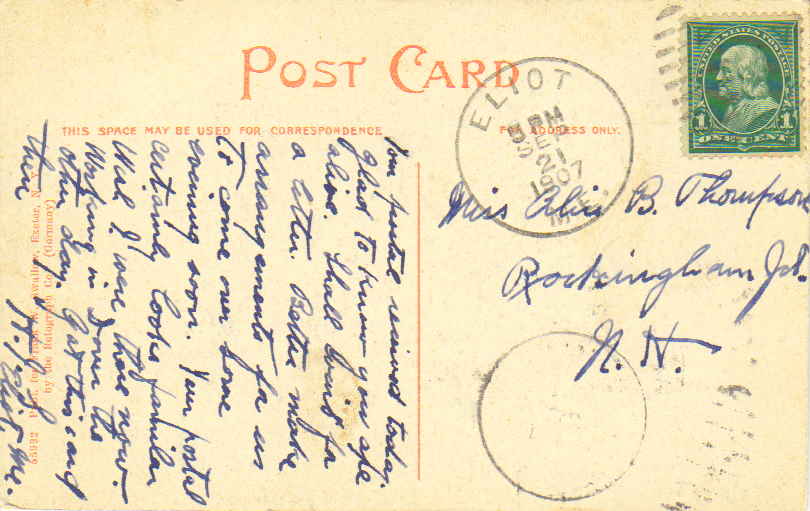 POST CARD
THIS SPACE MAY BE USED FOR CORRESPONDENCE
FOR ADDRESS ONLY.
ELIOT
21
1907
ME.
UNITED STATES POSTAGE
1 1
ONE CENT
Miss Alice B. Thompson
Rockingham Jct.
N. H.
Your postal received today.
glad to know you are
alive. Shall wait for
a letter. Better make
arrangements for us
to come over some
evening soon. Your postal
certainly looks familiar
Wish I were there now.
Working in Dover the
other day. Got this card
there
Eliot, Me.
55932 Pub. for Swallow, Exeter, N.
by the Rotograph Co. (Germany)